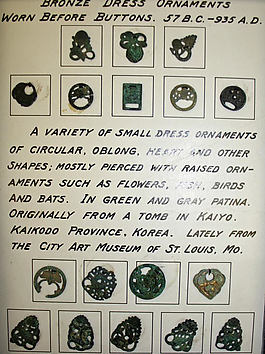 BRONZE DRESS ORNAMENTS
WORN BEFORE BUTTONS. 57 B.C.-935 A.D.
A VARIETY OF SMALL DRESS ORNAMENTS
OF CIRCULAR, OBLONG, HEART AND OTHER
SHAPES; MOSTLY PIERCED WITH RAISED ORN-
AMENTS SUCH AS FLOWERS, FISH, BIRDS
AND BATS. IN GREEN AND GRAY PATINA.
ORIGINALLY FROM A TOMB IN KAIYO.
KAIKODO PROVINCE, KOREA. LATELY FROM
THE CITY ART MUSEUM OF ST. LOUIS, MO.